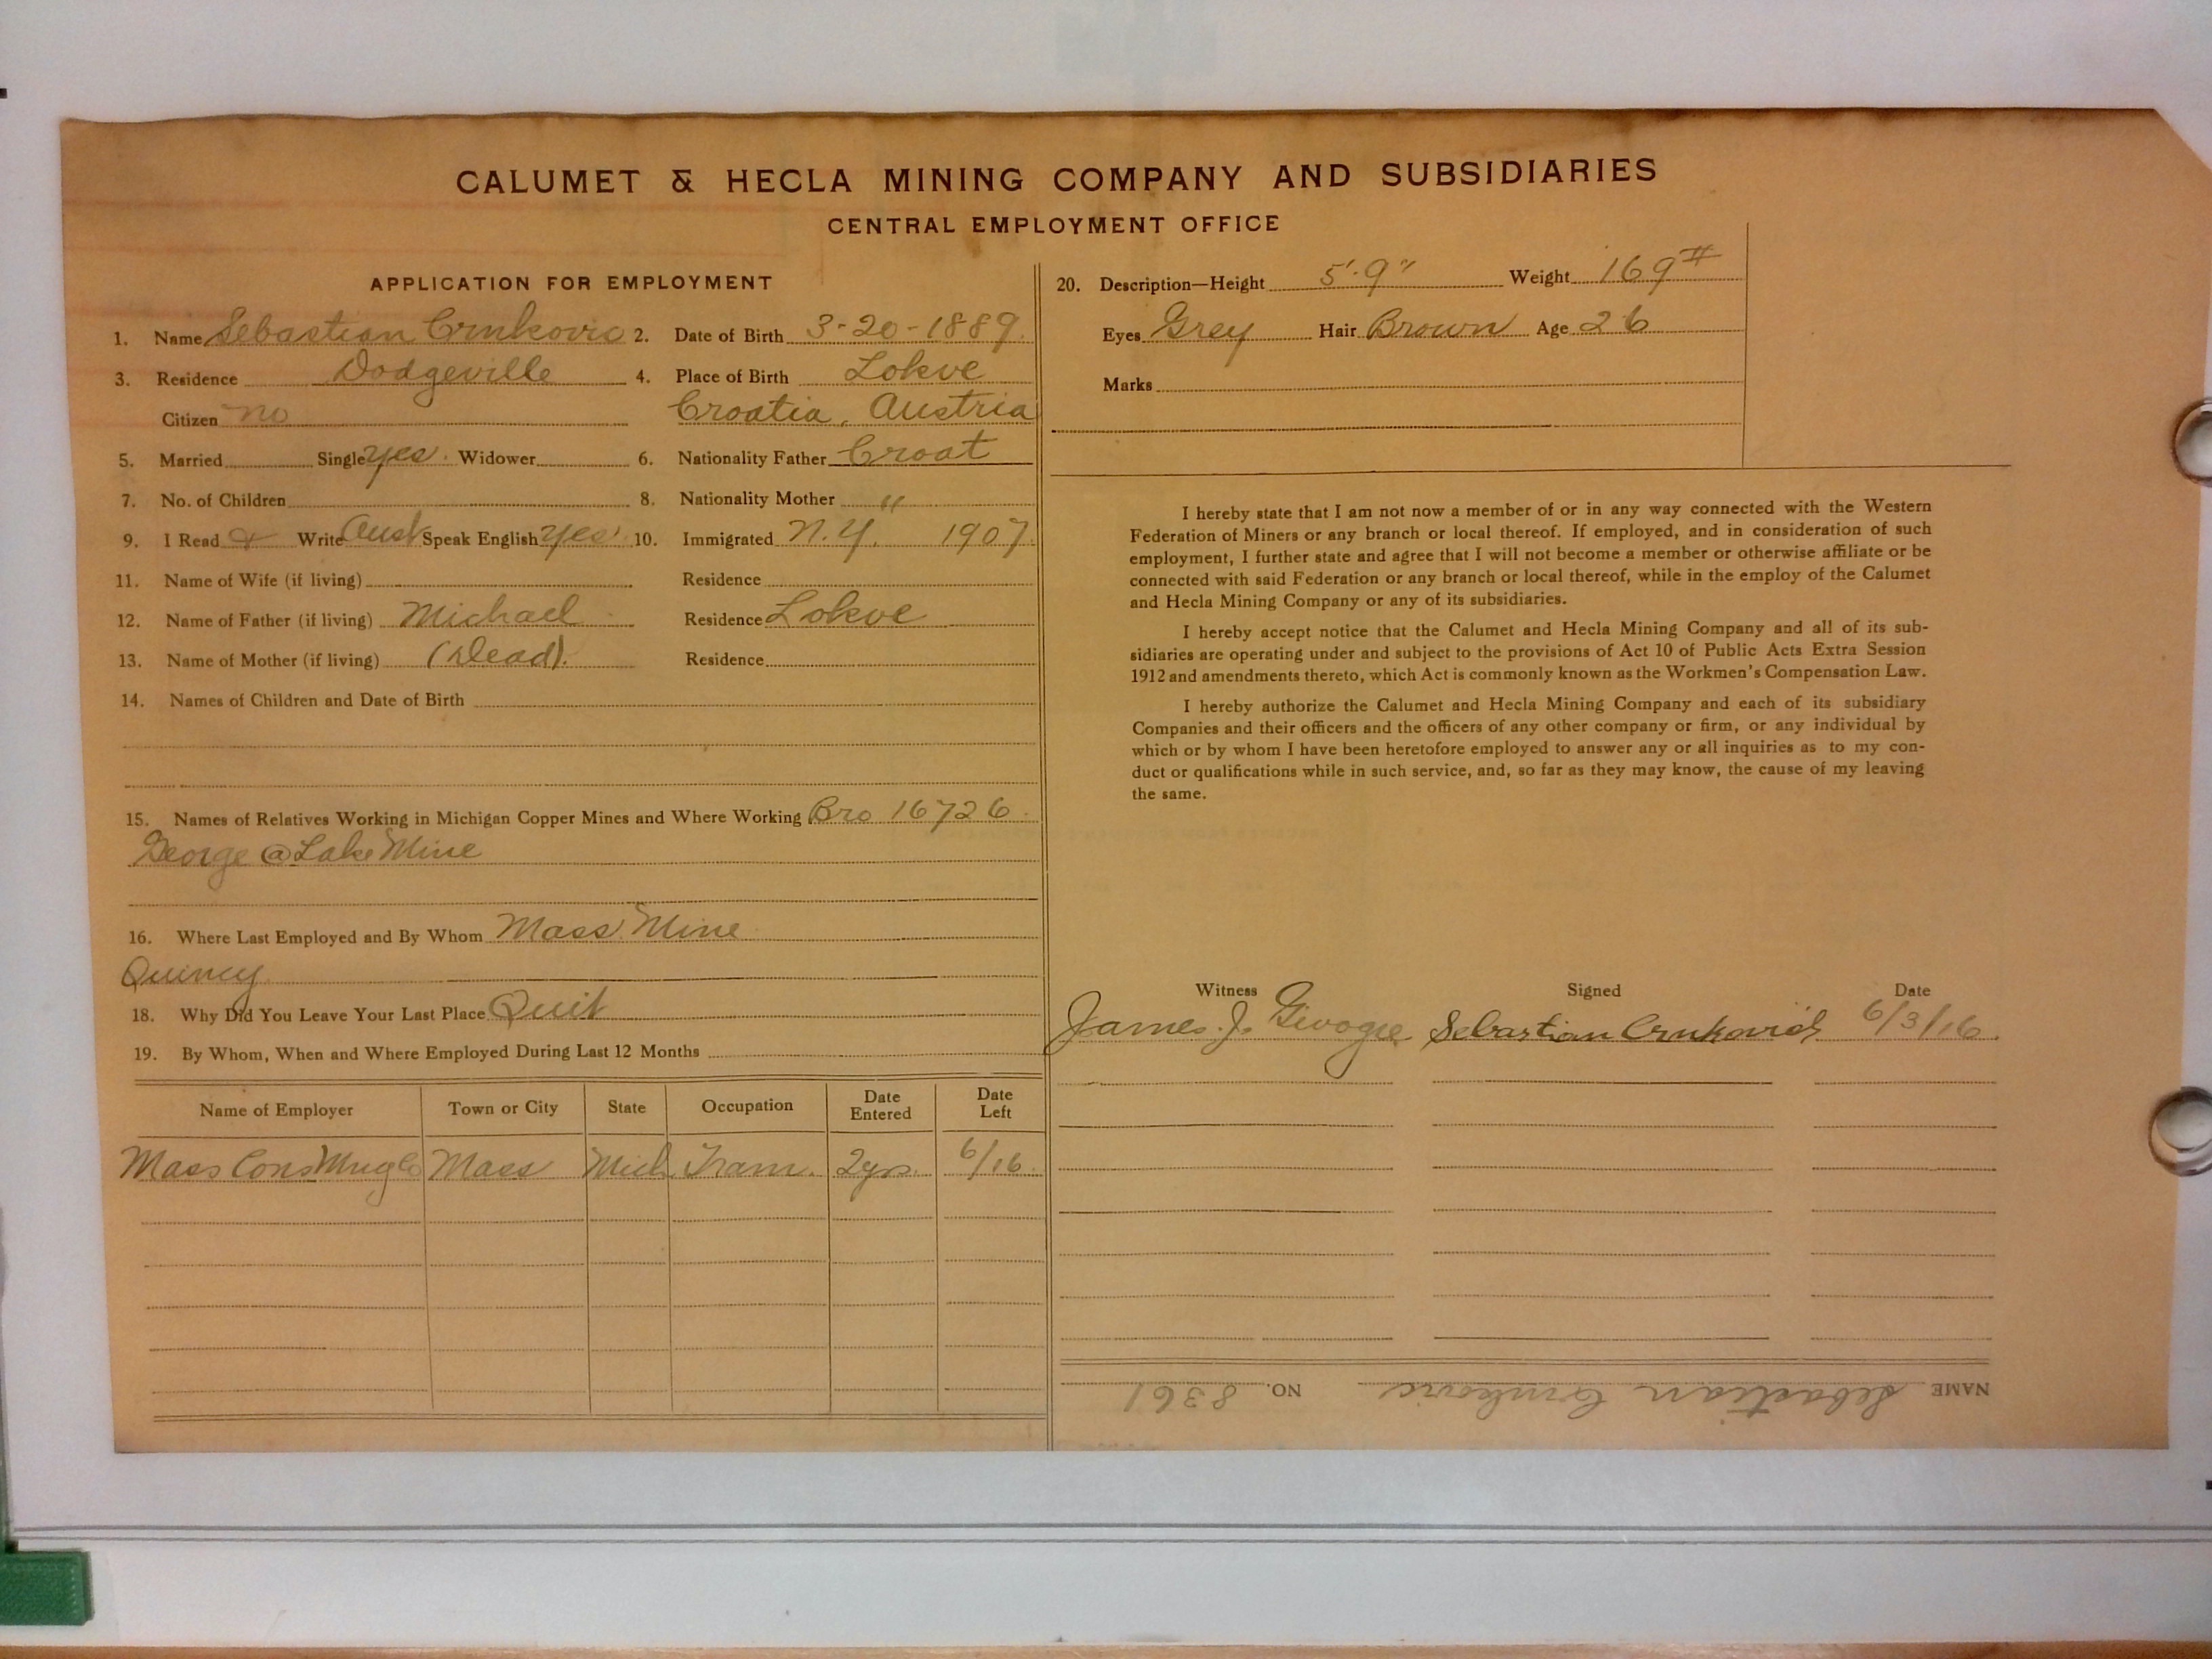 CALUMET & HECLA MINING COMPANY AND SUBSIDIARIES
CENTRAL EMPLOYMENT OFFICE
APPLICATION FOR EMPLOYMENT
1. Name Sebastian Crnkovic 2. Date of Birth 3-20-1889.
3. Residence Dodgeville 4. Place of Birth Lokve
Citizen no Croatia, Austria
5. Married Single yes. Widower 6. Nationality Father Croat
7. No. of Children 8. Nationality Mother "
9. I Read & Write Aust Speak English yes 10. Immigrated N.Y. 1907.
11. Name of Wife (if living) Residence
12. Name of Father (if living) Michael Residence Lokve
13. Name of Mother (if living) (Dead). Residence
14. Names of Children and Date of Birth
15. Names of Relatives Working in Michigan Copper Mines and Where Working Bro 16726
George @ Lake Mine
16. Where Last Employed and By Whom Mass Mine
Quincy
18. Why Did You Leave Your Last Place Quit
19. By Whom, When and Where Employed During Last 12 Months
Name of Employer Town or City State Occupation Date Entered Date Left
Mass Cons Mng Co Mass Mich Tram. 2yrs. 6/16
20. Description—Height 5'-9" Weight 169#
Eyes Grey Hair Brown Age 26
Marks
I hereby state that I am not now a member of or in any way connected with the Western
Federation of Miners or any branch or local thereof. If employed, and in consideration of such
employment, I further state and agree that I will not become a member or otherwise affiliate or be
connected with said Federation or any branch or local thereof, while in the employ of the Calumet
and Hecla Mining Company or any of its subsidiaries.
I hereby accept notice that the Calumet and Hecla Mining Company and all of its sub-
sidiaries are operating under and subject to the provisions of Act 10 of Public Acts Extra Session
1912 and amendments thereto, which Act is commonly known as the Workmen's Compensation Law.
I hereby authorize the Calumet and Hecla Mining Company and each of its subsidiary
Companies and their officers and the officers of any other company or firm, or any individual by
which or by whom I have been heretofore employed to answer any or all inquiries as to my con-
duct or qualifications while in such service, and, so far as they may know, the cause of my leaving
the same.
Witness Signed Date
James J. Sebastian Crnkovich 6/3/16.
NAME Sebastian Crnkovic NO. 8361